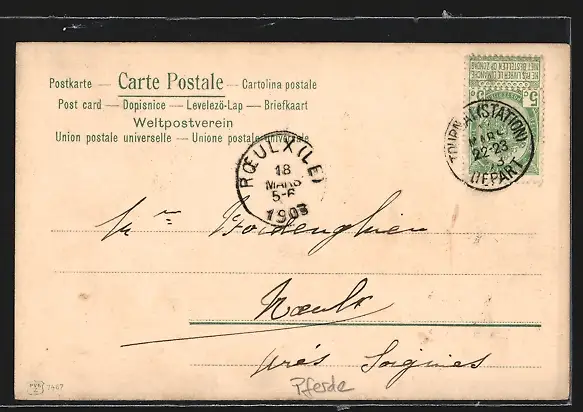 Postkarte — Carte Postale — Cartolina postale
Post card — Dopisnice — Levelezö-Lap — Briefkaart
Weltpostverein
Union postale universelle — Unione postale universale
NE PAS LIVRER LE DIMANCHE
NIET BESTELLEN OP ZONDAG
5c 5c
TOURNAI (STATION)
MARS
22-23
DEPART
RŒULX (LE)
18
MARS
5-6
1903
Rœulx
près Soignies
Pferde
7467